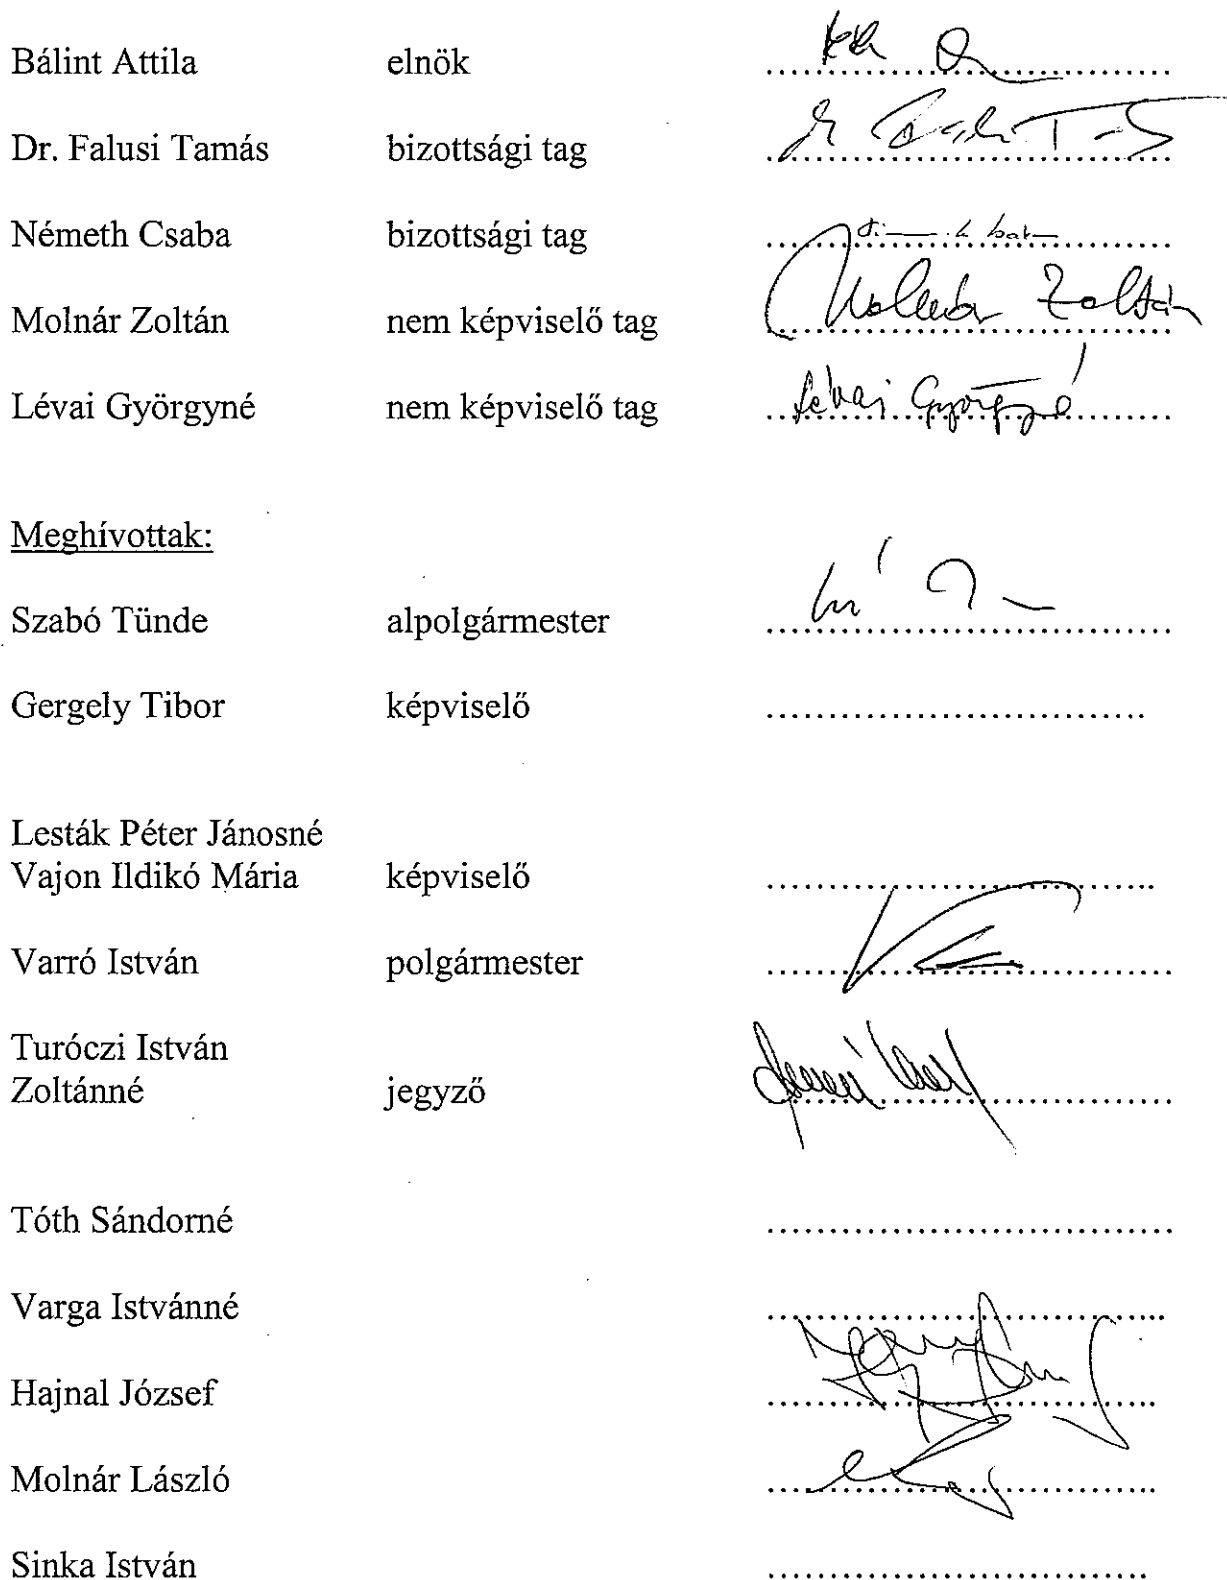 Bálint Attila elnök ..............................
Dr. Falusi Tamás bizottsági tag ..............................
Németh Csaba bizottsági tag ..............................
Molnár Zoltán nem képviselő tag Molnár Zoltán
Lévai Györgyné nem képviselő tag Lévai Györgyné
Meghívottak:
Szabó Tünde alpolgármester ..............................
Gergely Tibor képviselő ..............................
Lesták Péter Jánosné
Vajon Ildikó Mária képviselő ..............................
Varró István polgármester ..............................
Turóczi István
Zoltánné jegyző ..............................
Tóth Sándorné ..............................
Varga Istvánné ..............................
Hajnal József ..............................
Molnár László ..............................
Sinka István ..............................